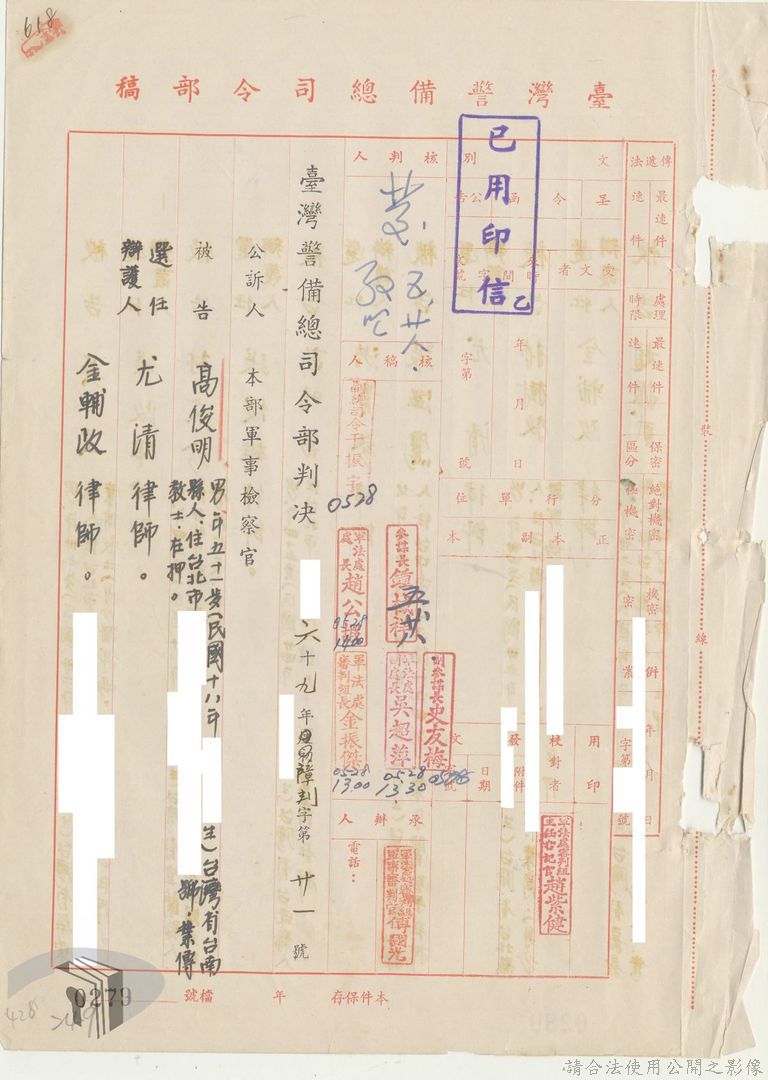 618
臺灣警備總司令部稿
傳遞法
最速件
速件
處理時限
最速件
速件
保密區分
絕對機密
極機密
機密
密
附件
年 月 日
字第 號
文別
呈
令
函
公告
受文者
年 月 日
字第 號
分行單位
正本
副本
用印
校對者
發文
附件
日期
已用印信
乙
核判人
五廿八
核稿人
0528
參謀長
五廿八
軍法處處長趙公
0528
14:00
副參謀長史友梅
0528
軍法處副處長吳超萍
0528
13:30
軍法處審判組長金振傑
0528
13:00
軍法處審判組主任書記官趙紫健
承辦人
電話：
臺灣警備總司令部判決
六十九年障判字第廿一號
公訴人 本部軍事檢察官
被告 高俊明
男年五十一歲(民國十八年
生)台灣省台南
縣人，住台北市
號，業傳
教士。在押。
選任
辯護人
尤清律師。
金輔政律師。
本件保存 年 檔號
0279
428
請合法使用公開之影像